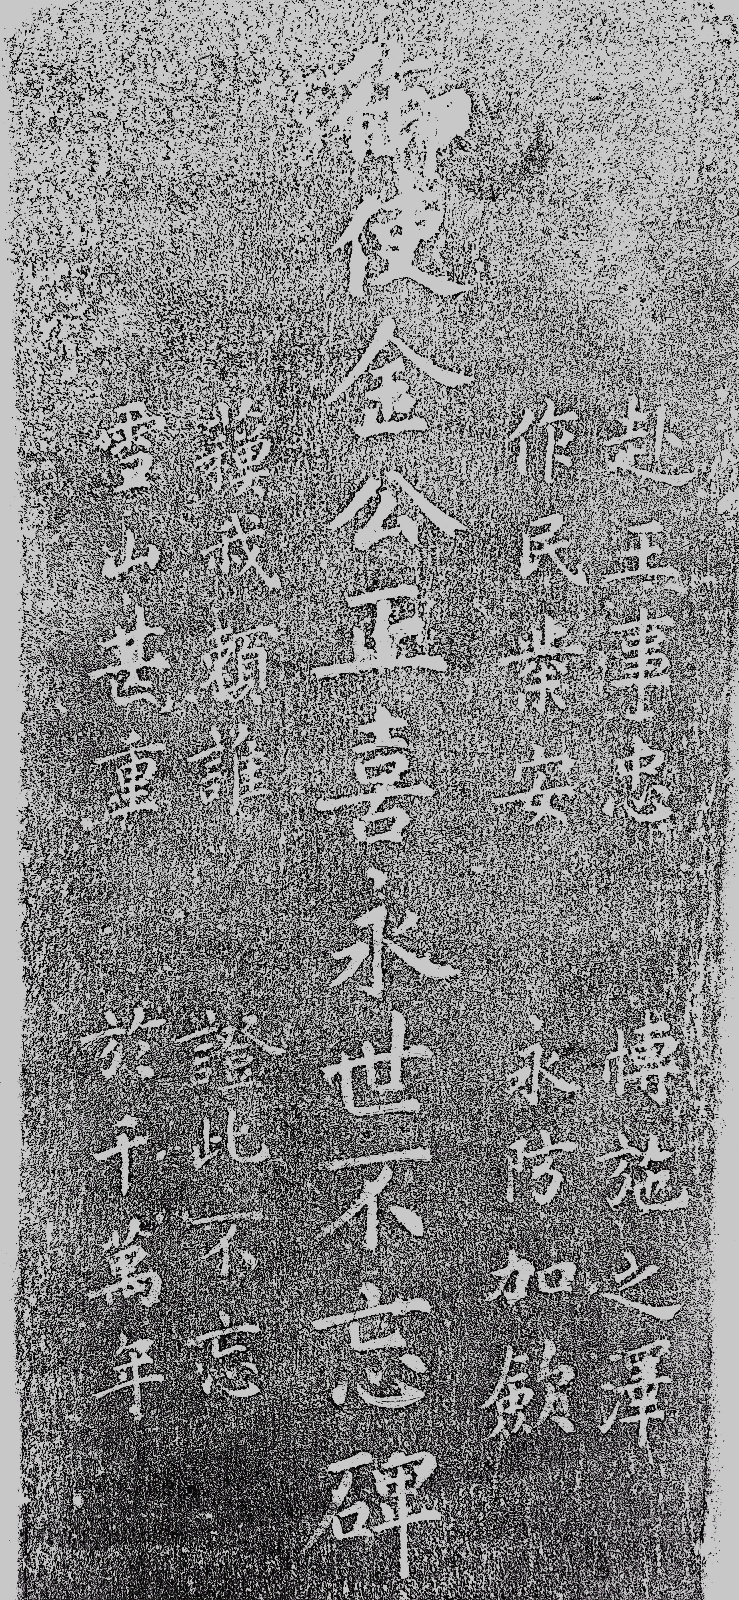 赴王事忠 博施之澤
作民業安 永防加歛
御使金公正喜永世不忘碑
護我賴誰 證此不忘
雪山甚重 於千萬年